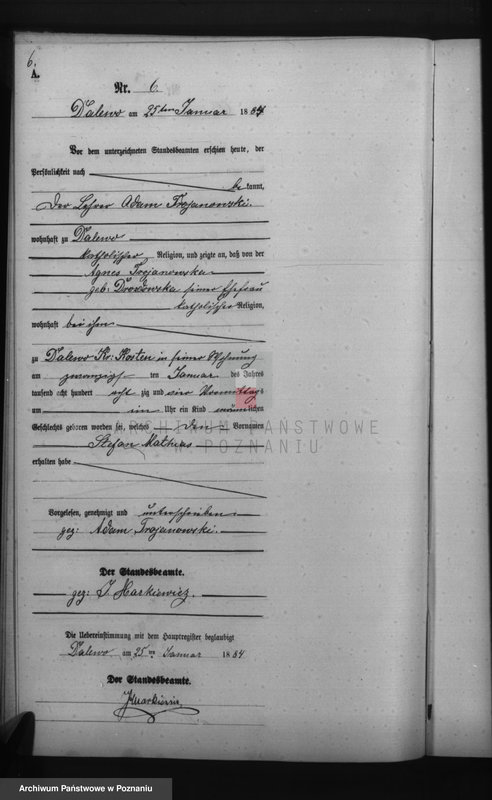 6.
A.
Nr. 6.
Dalewo am 25ten Januar 1884
Vor dem unterzeichneten Standesbeamten erschien heute, der
Persönlichkeit nach
be kannt,
Der Lehrer Adam Trojanowski.
wohnhaft zu Dalewo
katholischer Religion, und zeigte an, daß von der
Agnes Trojanowska
geb: seiner Ehefrau
katholischer Religion,
wohnhaft bei ihm
zu Dalewo Kr: Kosten in seiner Wohnung
am zwanzigs ten Januar des Jahres
tausend acht hundert acht zig und vier Vormittags
um Uhr ein Kind männlichen
Geschlechts geboren worden sei, welches den Vornamen
Stefan Mathias
erhalten habe
ARCHIWUM PAŃSTWOWE
W POZNANIU
Vorgelesen, genehmigt und unterschrieben.
gez: Adam Trojanowski.
Der Standesbeamte.
gez: J. Markiewicz.
Die Uebereinstimmung mit dem Hauptregister beglaubigt
Dalewo am 25ten Januar 1884
Der Standesbeamte.
JMarkiewicz
Archiwum Państwowe w Poznaniu